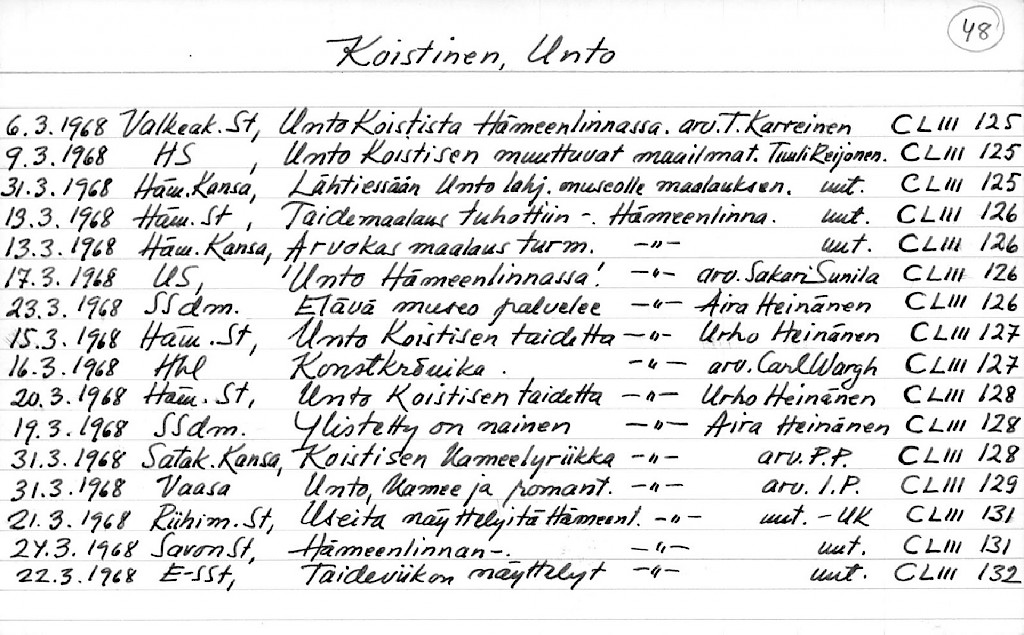 48
Koistinen, Unto
6.3.1968 Valkeak. St, Unto Koistista Hämeenlinnassa. arv. T. Karreinen CLIII 125
9.3.1968 HS, Unto Koistisen muuttuvat maailmat. Tuuli Reijonen. CLIII 125
31.3.1968 Häm. Kansa, Lähtiessään Unto lahj. museolle maalauksen. uut. CLIII 125
13.3.1968 Häm. St, Taidemaalaus tuhottiin -. Hämeenlinna. uut. CLIII 126
13.3.1968 Häm. Kansa, Arvokas maalaus turm. -"- uut. CLIII 126
17.3.1968 US, 'Unto Hämeenlinnassa'. -"- arv. Sakari Sunila CLIII 126
23.3.1968 SSdm. Elävä museo palvelee -"- Aira Heinänen CLIII 126
15.3.1968 Häm. St, Unto Koistisen taidetta -"- Urho Heinänen CLIII 127
16.3.1968 Hbl Konstkrönika. -"- arv. Carl Wargh CLIII 127
20.3.1968 Häm. St, Unto Koistisen taidetta -"- Urho Heinänen CLIII 128
19.3.1968 SSdm. Ylistetty on nainen -"- Aira Heinänen CLIII 128
31.3.1968 Satak. Kansa, Koistisen kameelyriikka -"- arv. P.P. CLIII 128
31.3.1968 Vaasa Unto, kamee ja romant. -"- arv. I.P. CLIII 129
21.3.1968 Riihim. St, Useita näyttelyitä Hämeenl. -"- uut. - UK CLIII 131
24.3.1968 Savon St, Hämeenlinnan -. -"- uut. CLIII 131
22.3.1968 E-SSt, Taideviikon näyttelyt -"- uut. CLIII 132